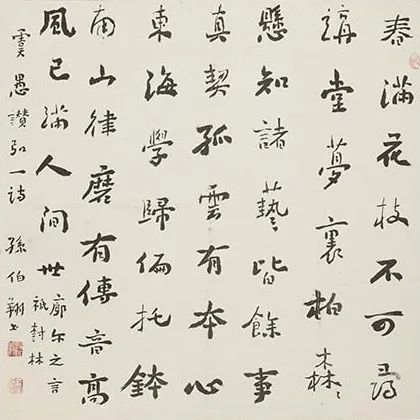 春滿花枝不可尋
講堂夢裏柏森〻
懸知諸藝皆餘事
真契孤雲有本心
東海學歸偏托鉢
南山律磨有傳音高
風已滿人間世廓尔之言
祇對林
虞愚讚弘一詩 孫伯翔書